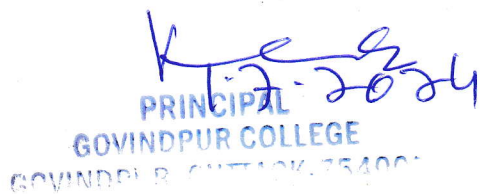 1.7.2024
PRINCIPAL
GOVINDPUR COLLEGE
GOVINDPUR, CUTTACK-